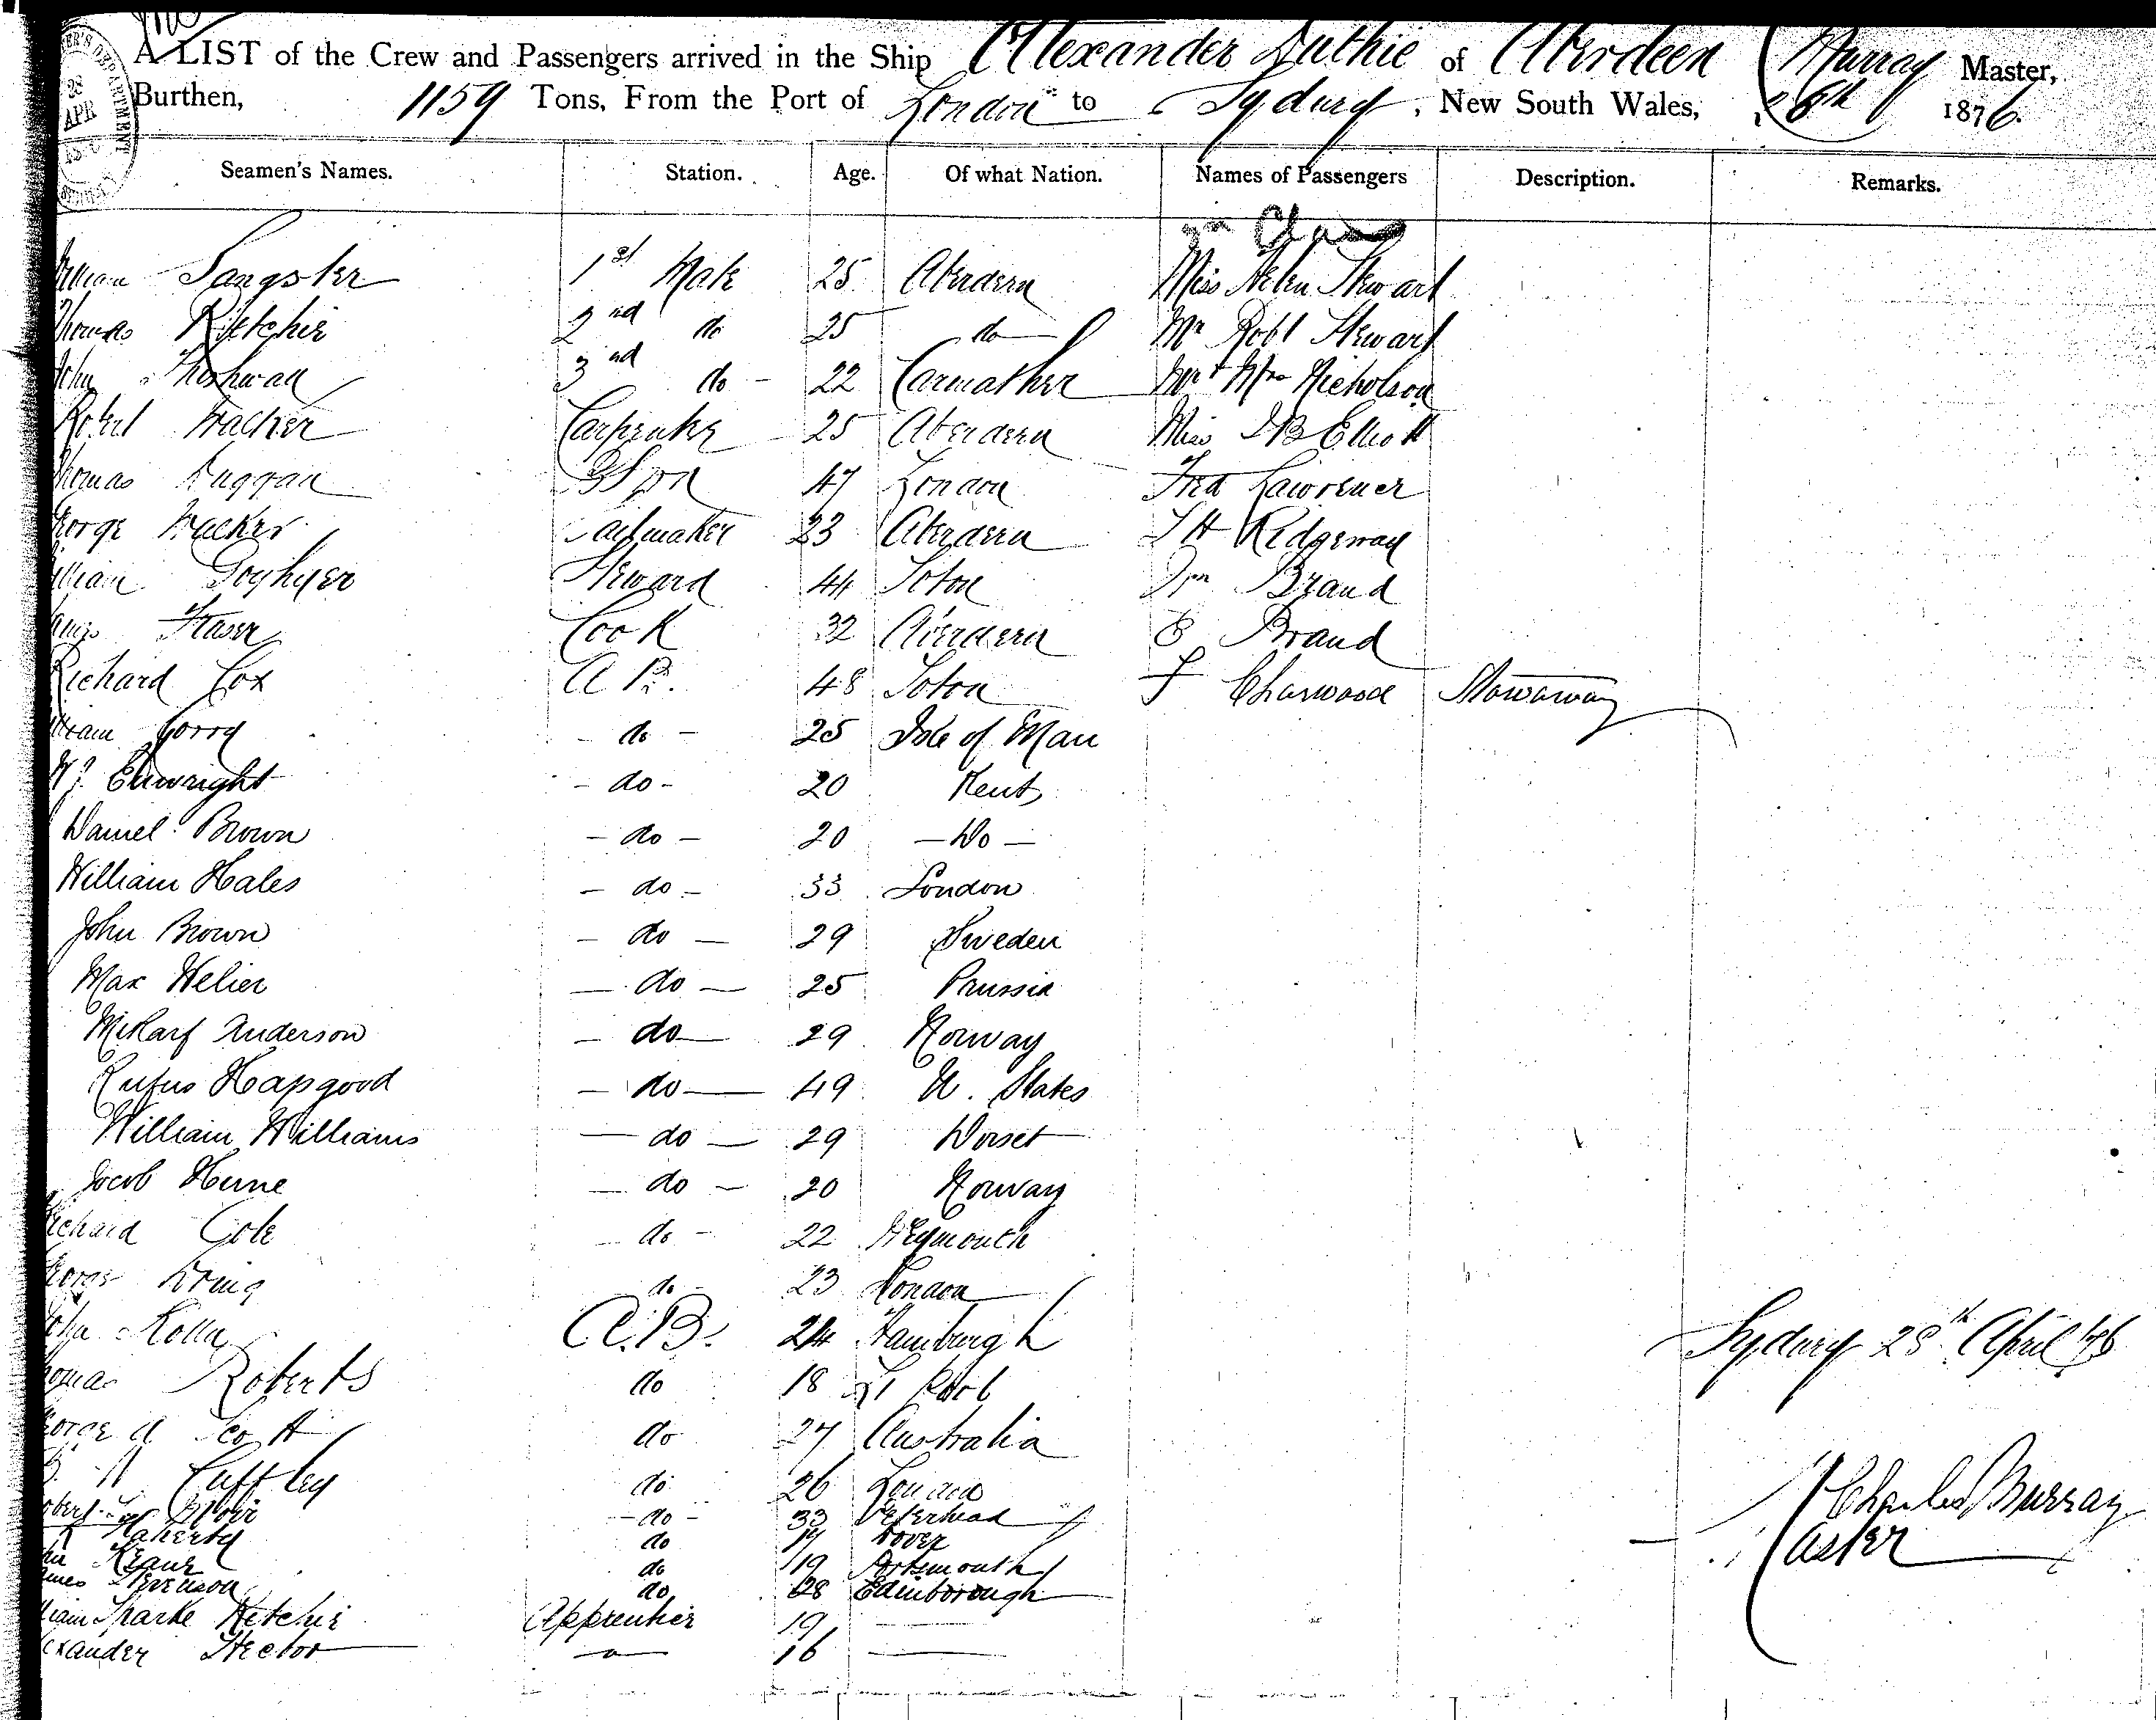 A LIST of the Crew and Passengers arrived in the Ship Alexander Duthie of Aberdeen Murray Master,
Burthen, 1159 Tons, From the Port of London to Sydney, New South Wales, 28th 1876.
Seamen's Names. Station. Age. Of what Nation. Names of Passengers Description. Remarks.
William Sangster 1st Mate 25 Aberdeen Miss Helen Stewart
Thomas Ritchie 2nd do 25 do Mr Robt Stewart
John 3nd do - 22 Mr & Mrs Nicholson
Robert Carpenter 25 Aberdeen Miss Elliott
Thomas Duggan 47 London Fred Lawrence
George Sailmaker 23 Aberdeen Ridgeway
William Steward 44 Soton Brand
James Fraser Cook 32 Aberdeen E Brand
Richard Cox A B. 48 Soton F Charwood Stowaway
William Gorry - do - 25 Isle of Man
Wm Ellwright - do - 20 Kent
Daniel Brown - do - 20 - Do -
William Hales - do - 33 London
John Brown - do - 29 Sweden
Max Welier - do - 25 Prussia
Anderson - do - 29 Norway
Rufus Hapgood - do - 49 U. States
William Williams - do - 29 Dorset
Jacob Herne - do - 20 Norway
Richard Cole - do - 22 Weymouth
George do - 23 London
John A.B. 24 Hamburgh
Thomas Roberts do 18 L'Pool
George A Scott do 27 Australia
Cuffley do 26 London
Robert - do - 33 Peterhead
Flaherty do 17 Dover
John Krane do 19 Portsmouth
James Stevenson do 28 Edinborough
William Sparke Ritchie Apprentice 19
Alexander Hector 16
Sydney 28th April 76
Charles Murray
Master